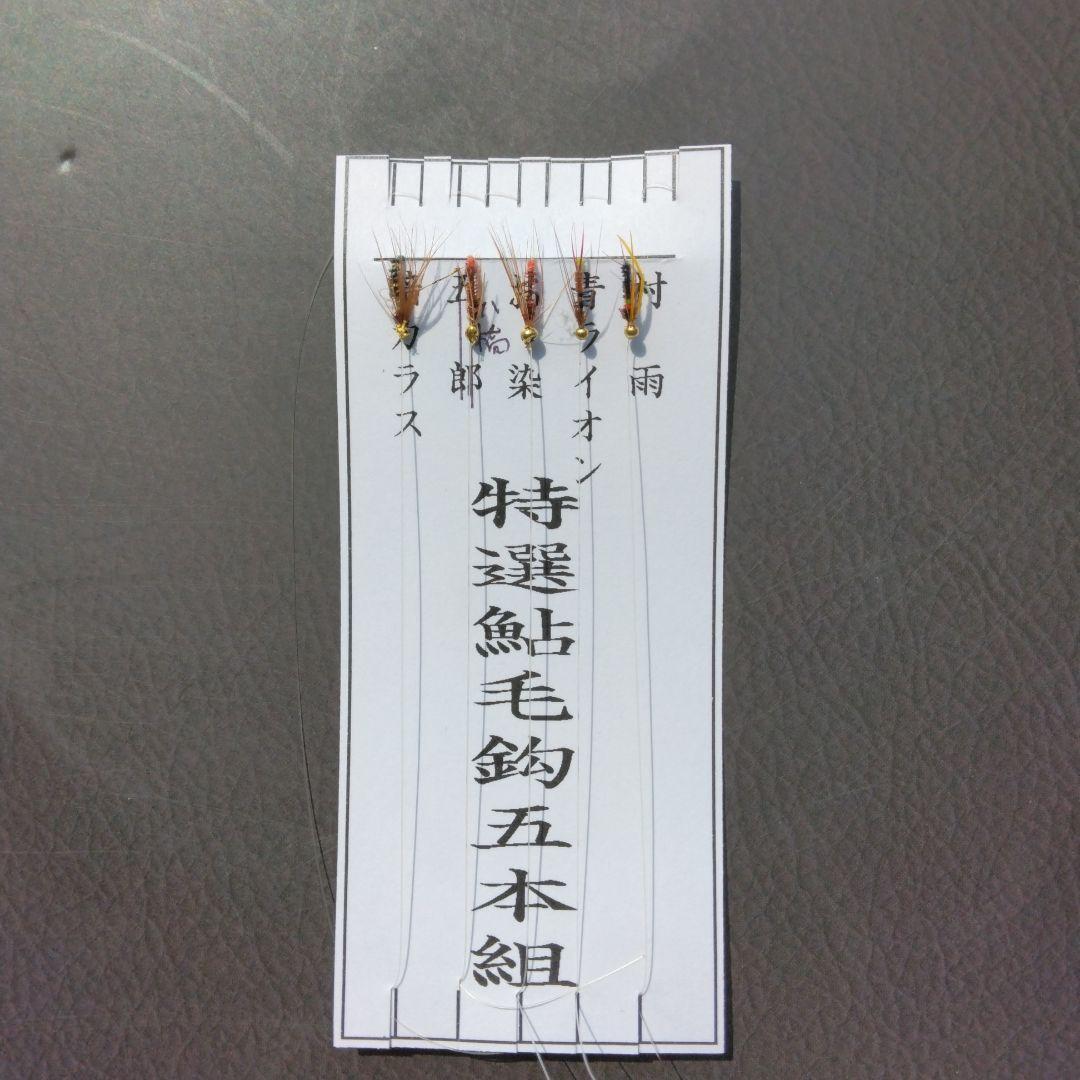 時雨
青ライオン
染
五郎
八橋
カラス
特選鮎毛鈎五本組